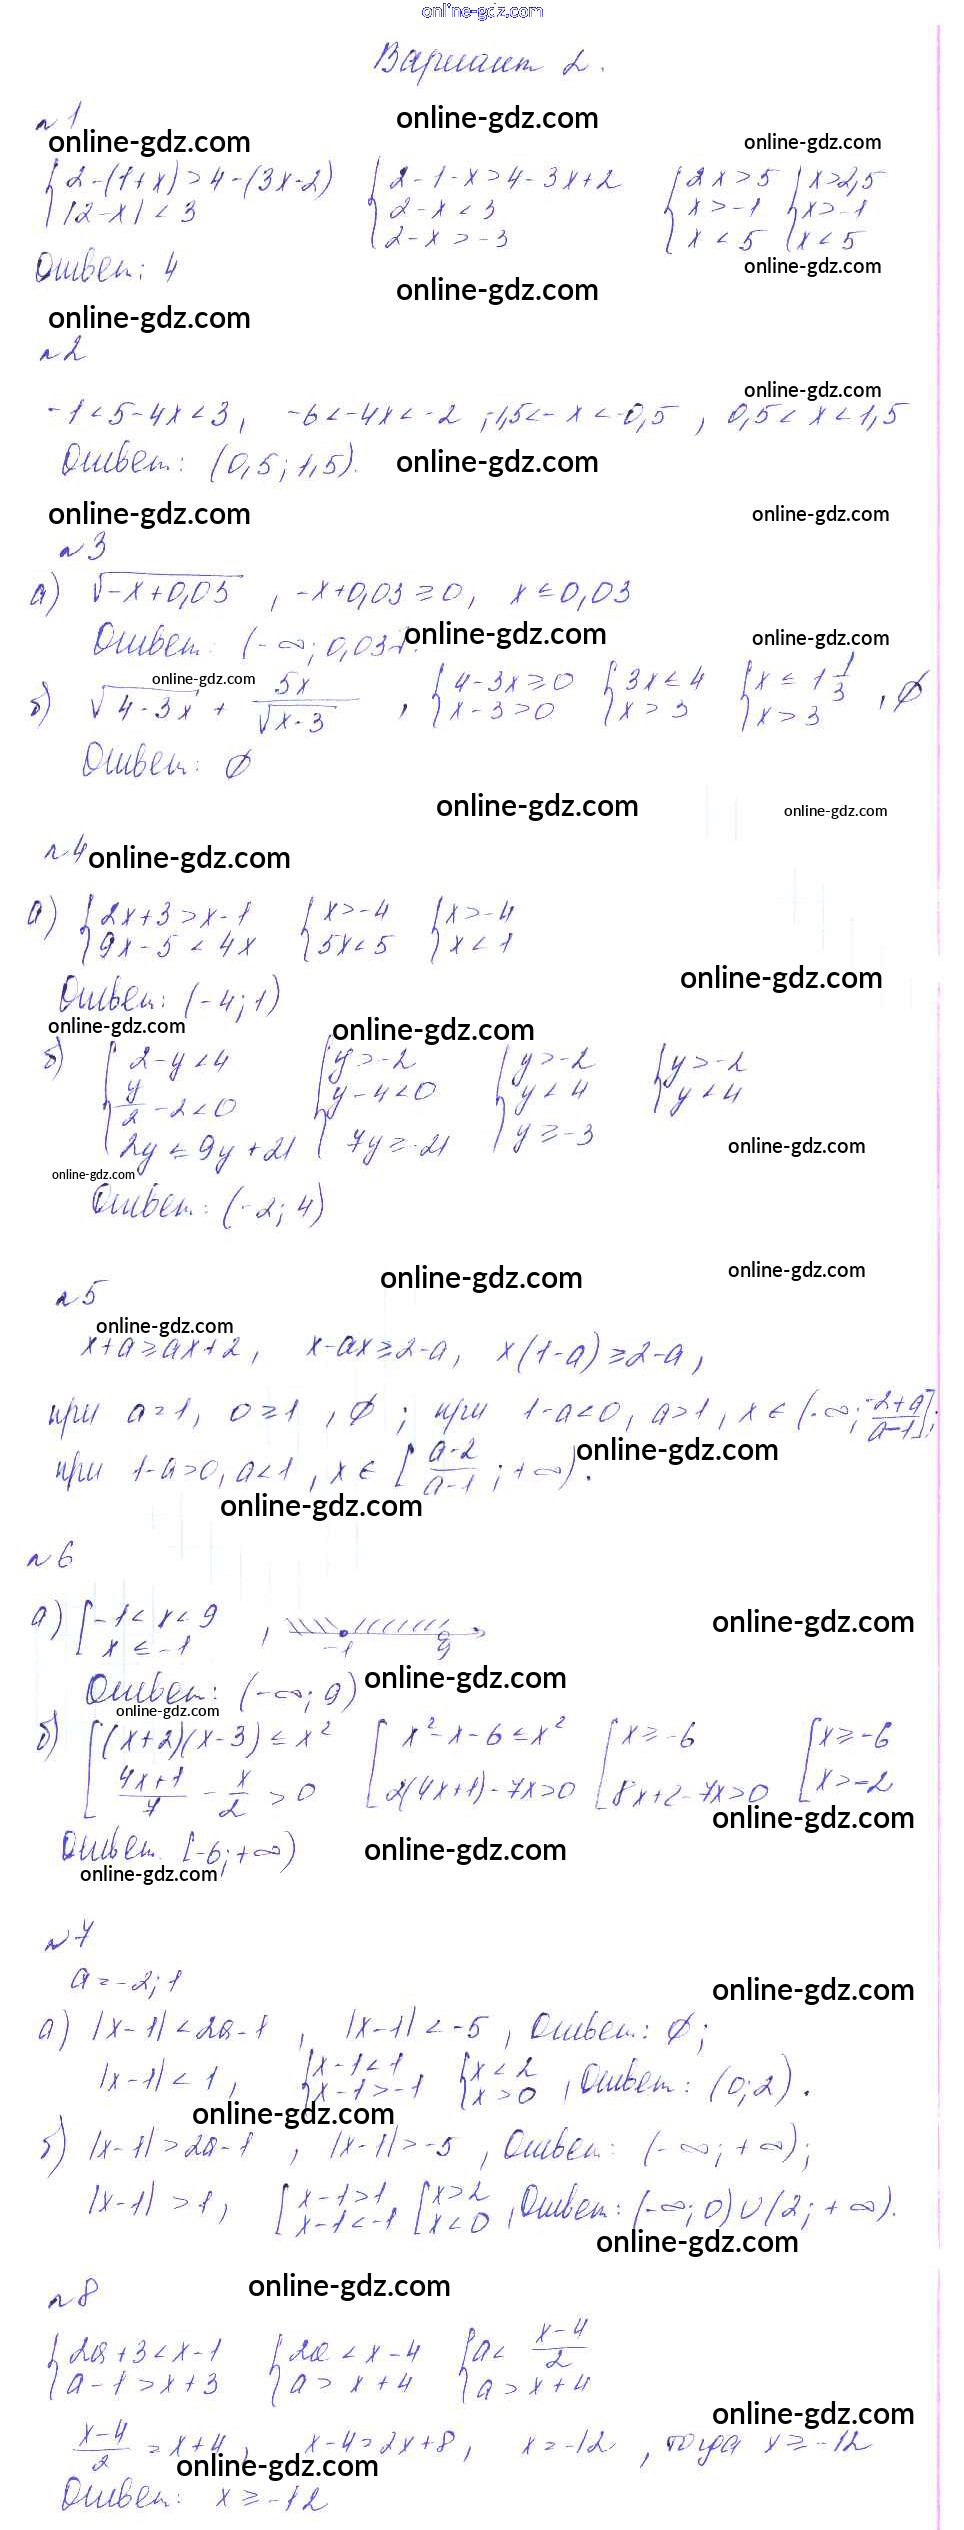 online-gdz.com
Вариант 2.
online-gdz.com
№1
online-gdz.com online-gdz.com
{2-(1+x)>4-(3x-2) {2-1-x>4-3x+2 {2x>5 {x>2,5
|2-x|<3 2-x<3 x>-1 x>-1
2-x>-3 x<5 x<5
Ответ: 4 online-gdz.com
online-gdz.com
online-gdz.com
№2
online-gdz.com
-1<5-4x<3, -6<-4x<-2 ; -1,5<-x<-0,5 , 0,5<x<1,5
Ответ: (0,5; 1,5). online-gdz.com
online-gdz.com online-gdz.com
№3
а) √-x+0,03 , -x+0,03≥0, x≤0,03
Ответ: (-∞; 0,03]. online-gdz.com online-gdz.com
online-gdz.com
б) √4-3x + 5x/√x-3 , {4-3x≥0 {3x≤4 {x≤1 1/3 , ∅
x-3>0 x>3 x>3
Ответ: ∅
online-gdz.com online-gdz.com
№4 online-gdz.com
а) {2x+3>x-1 {x>-4 {x>-4
9x-5<4x 5x<5 x<1
online-gdz.com
Ответ: (-4; 1)
online-gdz.com online-gdz.com
б) {2-y<4 {y>-2 {y>-2 {y>-2
y/2-2<0 y-4<0 y<4 y<4
2y≤9y+21 7y≥-21 y≥-3
online-gdz.com
online-gdz.com
Ответ: (-2; 4)
online-gdz.com online-gdz.com
№5
online-gdz.com
x+a≥ax+2, x-ax≥2-a, x(1-a)≥2-a,
при a=1, 0≥1 , ∅ ; при 1-a<0, a>1, x∈(-∞; -2+a/a-1];
online-gdz.com
при 1-a>0, a<1 , x∈[a-2/a-1; +∞).
online-gdz.com
№6
а) [-1<x<9 , -1 9
x≤-1
online-gdz.com
Ответ: (-∞; 9) online-gdz.com
online-gdz.com
б) [(x+2)(x-3)≤x² [x²-x-6≤x² [x≥-6 [x≥-6
4x+1/7 - x/2 >0 2(4x+1)-7x>0 8x+2-7x>0 x>-2
online-gdz.com
Ответ. [-6; +∞) online-gdz.com
online-gdz.com
№7
a=-2; 1
online-gdz.com
а) |x-1|<2a-1 , |x-1|<-5 , Ответ: ∅;
|x-1|<1, {x-1<1 {x<2 , Ответ: (0; 2).
x-1>-1, x>0
online-gdz.com
б) |x-1|>2a-1 , |x-1|>-5 , Ответ: (-∞; +∞);
|x-1|>1, [x-1>1, [x>2 , Ответ: (-∞; 0)∪(2; +∞).
x-1<-1 x<0
online-gdz.com
online-gdz.com
№8
{2a+3<x-1 {2a<x-4 {a<x-4/2
a-1>x+3 a>x+4 a>x+4
online-gdz.com
x-4/2=x+4, x-4=2x+8, x=-12 , тогда x≥-12
online-gdz.com
Ответ: x≥-12